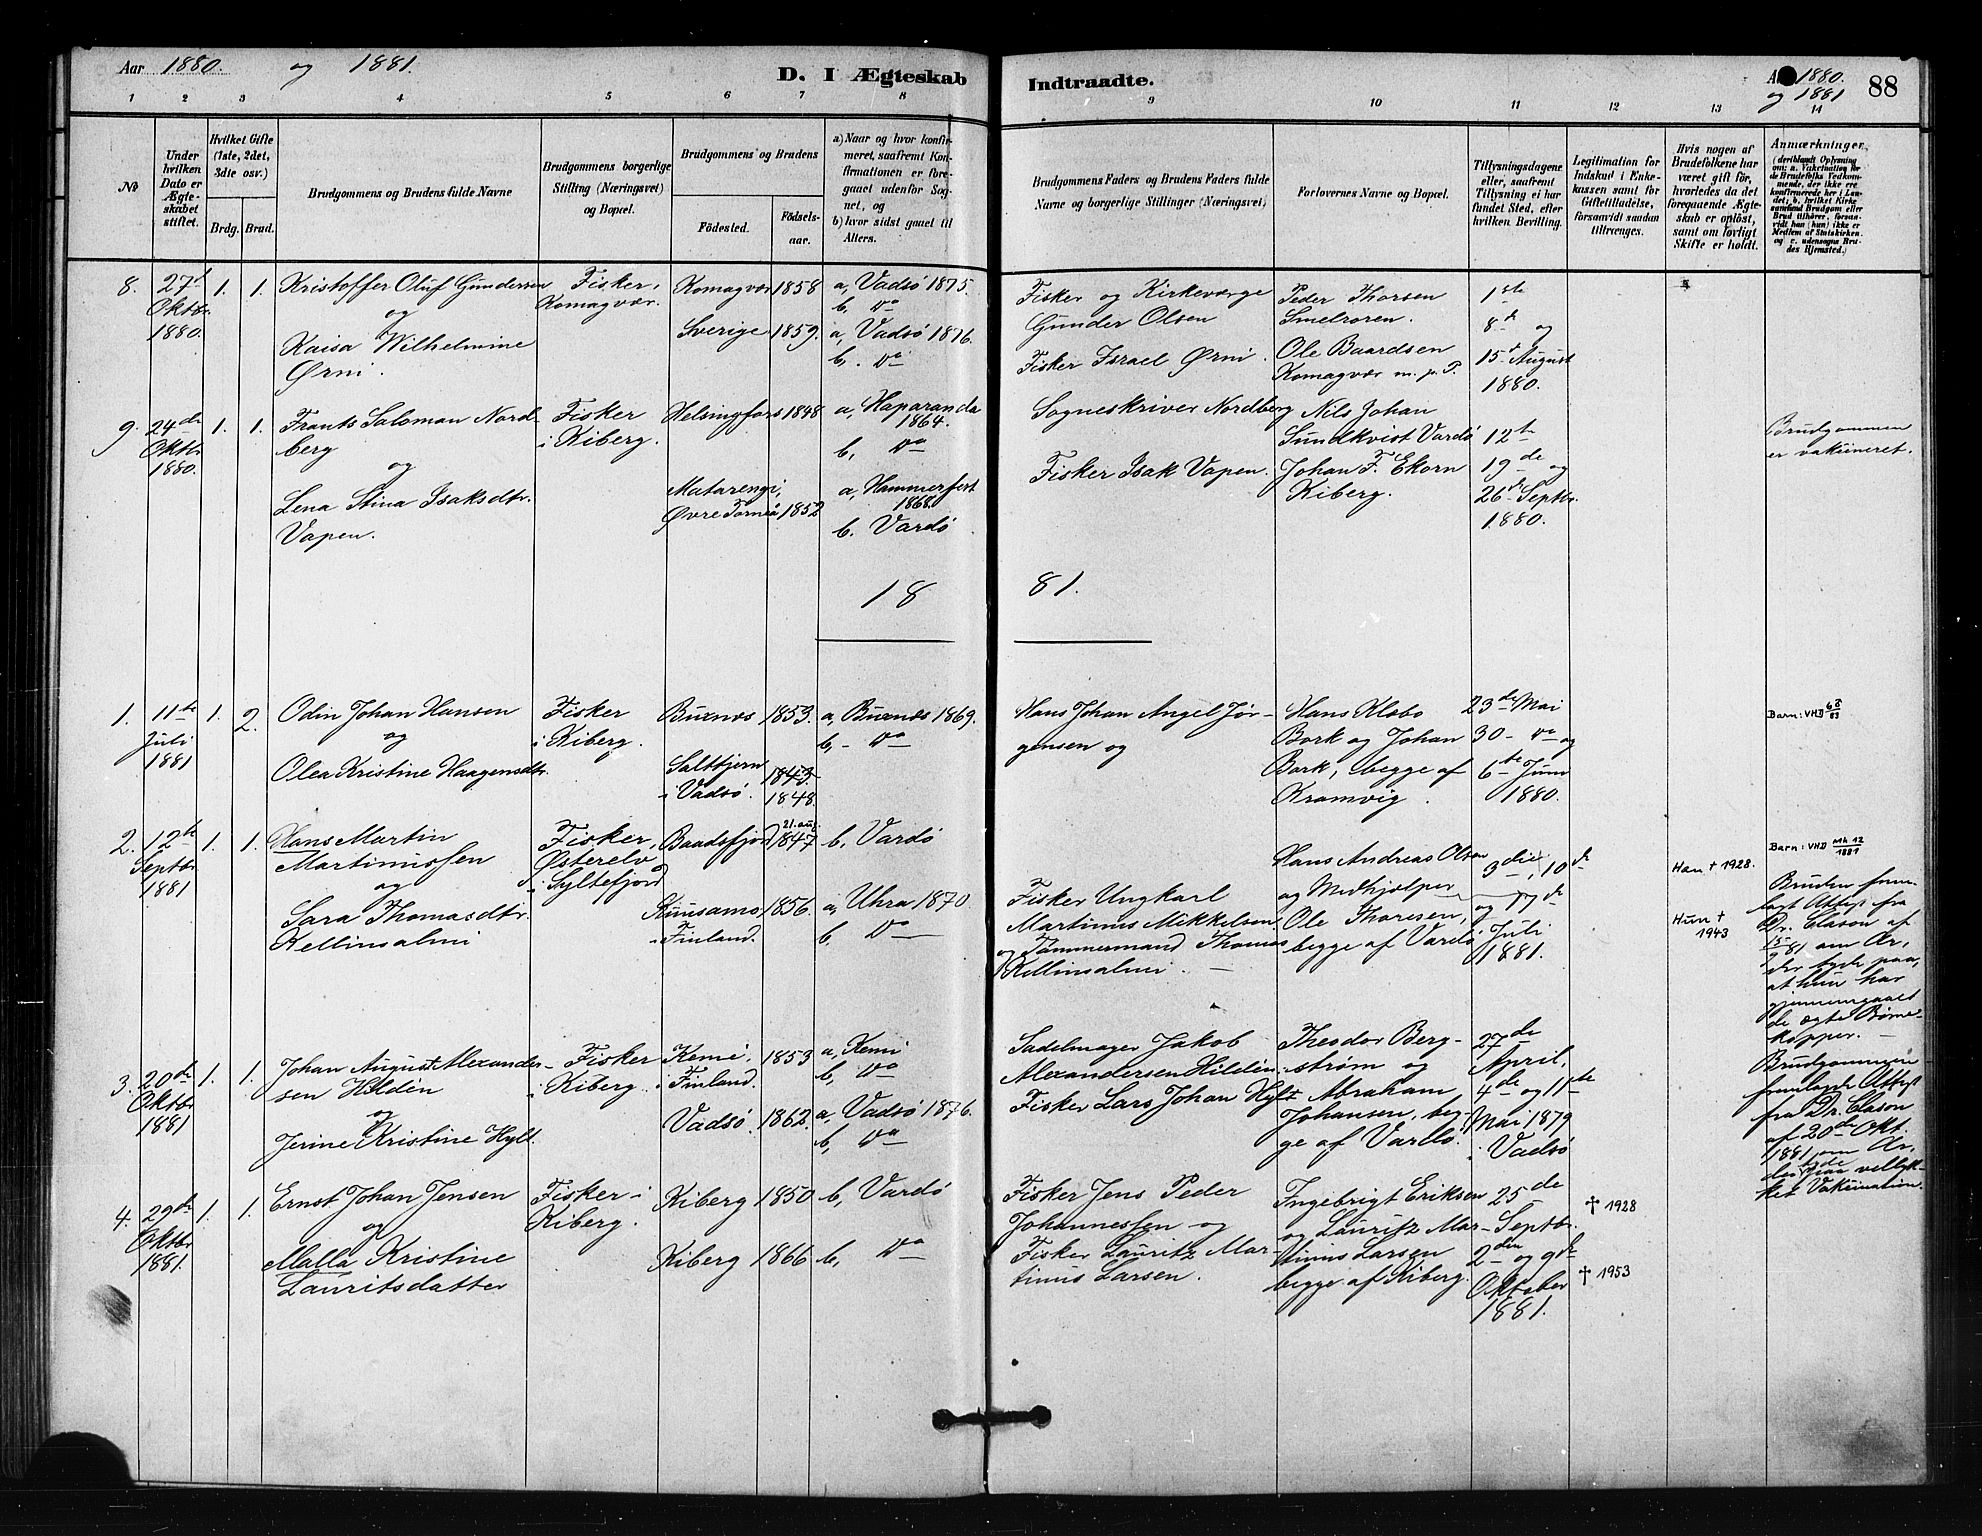 Aar 1880. og 1881.
D. I Ægteskab Indtraadte.
1880. og 1881
88
1 2 3 4 5 6 7 8 9 10 11 12 13 14
No
Under hvilken Dato er Ægteskabet stiftet.
Hvilket Gifte (1ste, 2det, 3die osv.)
Brdg. Brud.
Brudgommens og Brudens fulde Navne
Brudgommens borgerlige Stilling (Næringsvei) og Bopæl.
Brudgommens og Brudens
Födested.
Födsels-aar.
a) Naar og hvor konfirmeret, saafremt Konfirmationen er foregaaet udenfor Sognet, og
b) hvor sidst gaaet til Alters.
Brudgommens Faders og Brudens Faders fulde Navne og borgerlige Stillinger (Næringsvei)
Forlovernes Navne og Bopæl.
Tillysningsdagene eller, saafremt Tillysning ei har fundet Sted, efter hvilken Bevilling.
Legitimation for Indskud i Enkekassen samt for Giftetilladelse, forsaavidt saadan tiltrænges.
Hvis nogen af Brudefolkene har været gift før, hvorledes da det foregaaende Ægteskab er opløst, samt om lovligt Skifte er holdt.
Anmærkninger,
(deriblandt Oplysning om: a. Vakcination for de Brudefolks Vedkommende, der ikke ere konfirmerede her i Landet; b. hvilket Kirkesamfund Brudgom eller Brud tilhører, forsaavidt han (hun) ikke er Medlem af Statskirken, og c. udensogns Brudes Hjemsted.)
8. 27de Oktbr. 1880. 1. 1.
Kristoffer Oluf Gundersen
og
Kaisa Wilhelmine
Ørni.
Fisker,
Komagvær.
Komagvær 1858 a, Vadsø 1875.
b, Do
Sverige 1859. a, Vadsø 1876.
b. Do
Fisker og Kirkeværge
Gunder Olsen
Fisker Israel Ørni.
Peder Thorsen
Smelroren.
Ole Baardsen
Komagvær m. p. P.
1ste
8de og
15de August
1880.
9. 24de Oktbr. 1880. 1. 1.
Frants Saloman Nord-
berg
og
Lena Stina Isaksdtr.
Vapen.
Fisker
i Kiberg.
Helsingfors 1848 a, Haparanda
1864.
b, Do
Matarengi,
Øvre Torneå 1852 a, Hammerfest
1868.
b. Vardø
Sogneskriver Nordberg
Fisker Isak Vapen.
Nils Johan
Sundkvist Vardø
Johan F. Ekorn
Kiberg.
12te
19de og
26de Septbr.
1880.
Brudgommen
er vakcineret.
18 81.
1. 11te Juli 1881 1. 2.
Odin Johan Hansen
og
Olea Kristine Haagensdtr.
Fisker
i Kiberg.
Buxnes 1853. a, Buxnes 1869.
b, - Do
Saltbjern
i Vadsø. 1843.
1848.
Hans Johan Angel Jør-
gensen og
Hans Klæbo
Bork og Johan
Bork, begge af
Kramvig.
23de Mai
30- Do og
6te Juni
1880.
Barn: VHD 6 8/83
2. 12te Septbr 1881 1. 1.
Hans Martin
Martinussen
og
Sara Thomasdtr.
Kellinsalmi
Fisker,
Østerelv
i Syltefjord
Baadsfjord 21. aug. 1847 b, Vardø
Kuusamo 1856. a, Uhra 1870.
i Finland. b, Do
Fisker Ungkarl
Martinus Mikkelsen
og Tømmermand Thomas
Kellinsalmi.
Hans Andreas Olsen
og Medhjælper
Ole Thoresen,
begge af Vardø
3die, 10de
og 17de
Juli
1881.
Han † 1928.
Hun † 1943
Barn: VHD Mk 12/1881
Bruden frem-
lagt Attest fra
Dr. Clason af
om Ar,
der tyde paa,
at hun har
gjennemgaaet
de ægte Børne-
kopper.
3. 20de Oktbr 1881 1. 1.
Johan August Alexander-
sen Hildén
og
Jerine Kristine Hylt.
Fisker
i Kiberg.
Kemi. 1853 a, Kemi
i Finland. b, Do
Vadsø. 1862. a, Vadsø 1876.
b, Do
Sadelmager Jakob
Alexandersen Hildén.
Fisker Lars Johan Hylt
Theodor Berg-
strøm og
Abraham
Johansen, beg-
ge af Vardø.
27de
April,
4de og 11te
Mai 1879
i Vadsø
Brudgommen
fremlagde Attest
fra Dr. Clason
af 20de Okt.
1881 om Ar,
der tyde paa vellyk-
ket Vakcination.
4. 29de Oktbr 1881. 1. 1.
Ernst Johan Jensen
og
Malla Kristine
Lauritsdatter
Fisker i
Kiberg.
Kiberg 1850 b, Vardø
Kiberg 1866 b, Do
Fisker Jens Peder
Johannessen og
Fisker Lauritz Mar-
tinus Larsen.
Ingebrigt Eriksen
og Lauritz Mar-
tinus Larsen
begge af Kiberg.
25de
Septbr.
2den og 9de
Oktober
1881.
† 1928
† 1953